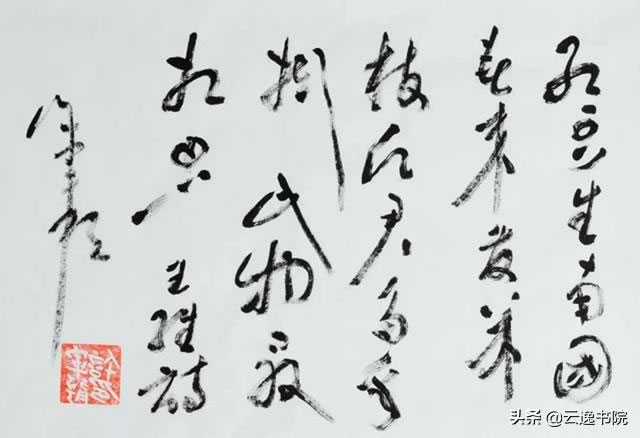 红豆生南國
春来发幾
枝愿君多采
撷此物最
相思 王维诗
头条 @云逸书院